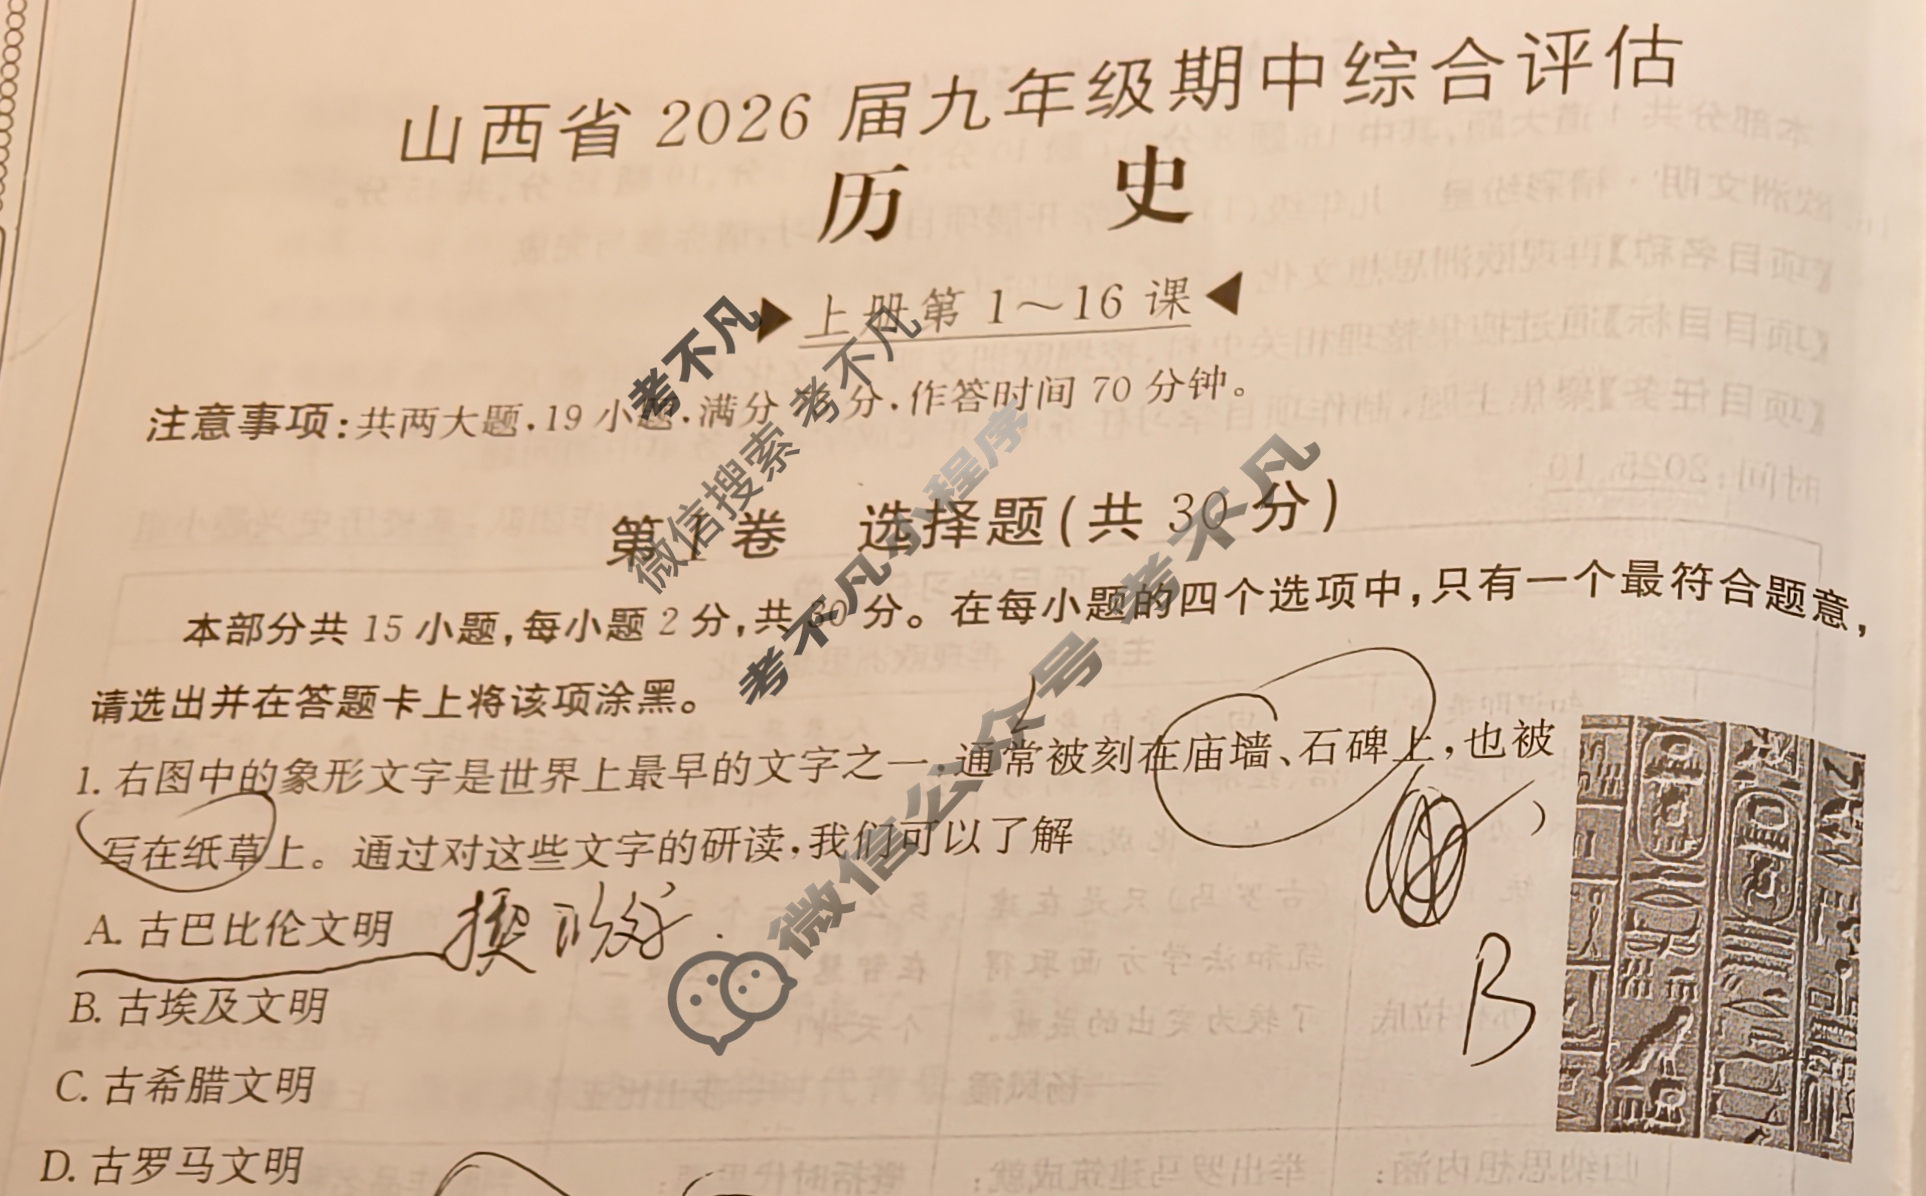 山西省2026届九年级期中综合评估
历 史
▶上册第1～16课◀
注意事项:共两大题,19小题,满分 分,作答时间70分钟。
第Ⅰ卷 选择题(共30分)
本部分共15小题,每小题2分,共30分。在每小题的四个选项中,只有一个最符合题意,
请选出并在答题卡上将该项涂黑。
1.右图中的象形文字是世界上最早的文字之一,通常被刻在庙墙、石碑上,也被
写在纸草上。通过对这些文字的研读,我们可以了解
A.古巴比伦文明
B
B.古埃及文明
C.古希腊文明
D.古罗马文明
考不凡
微信搜索 考不凡
考不凡小程序
微信公众号 考不凡